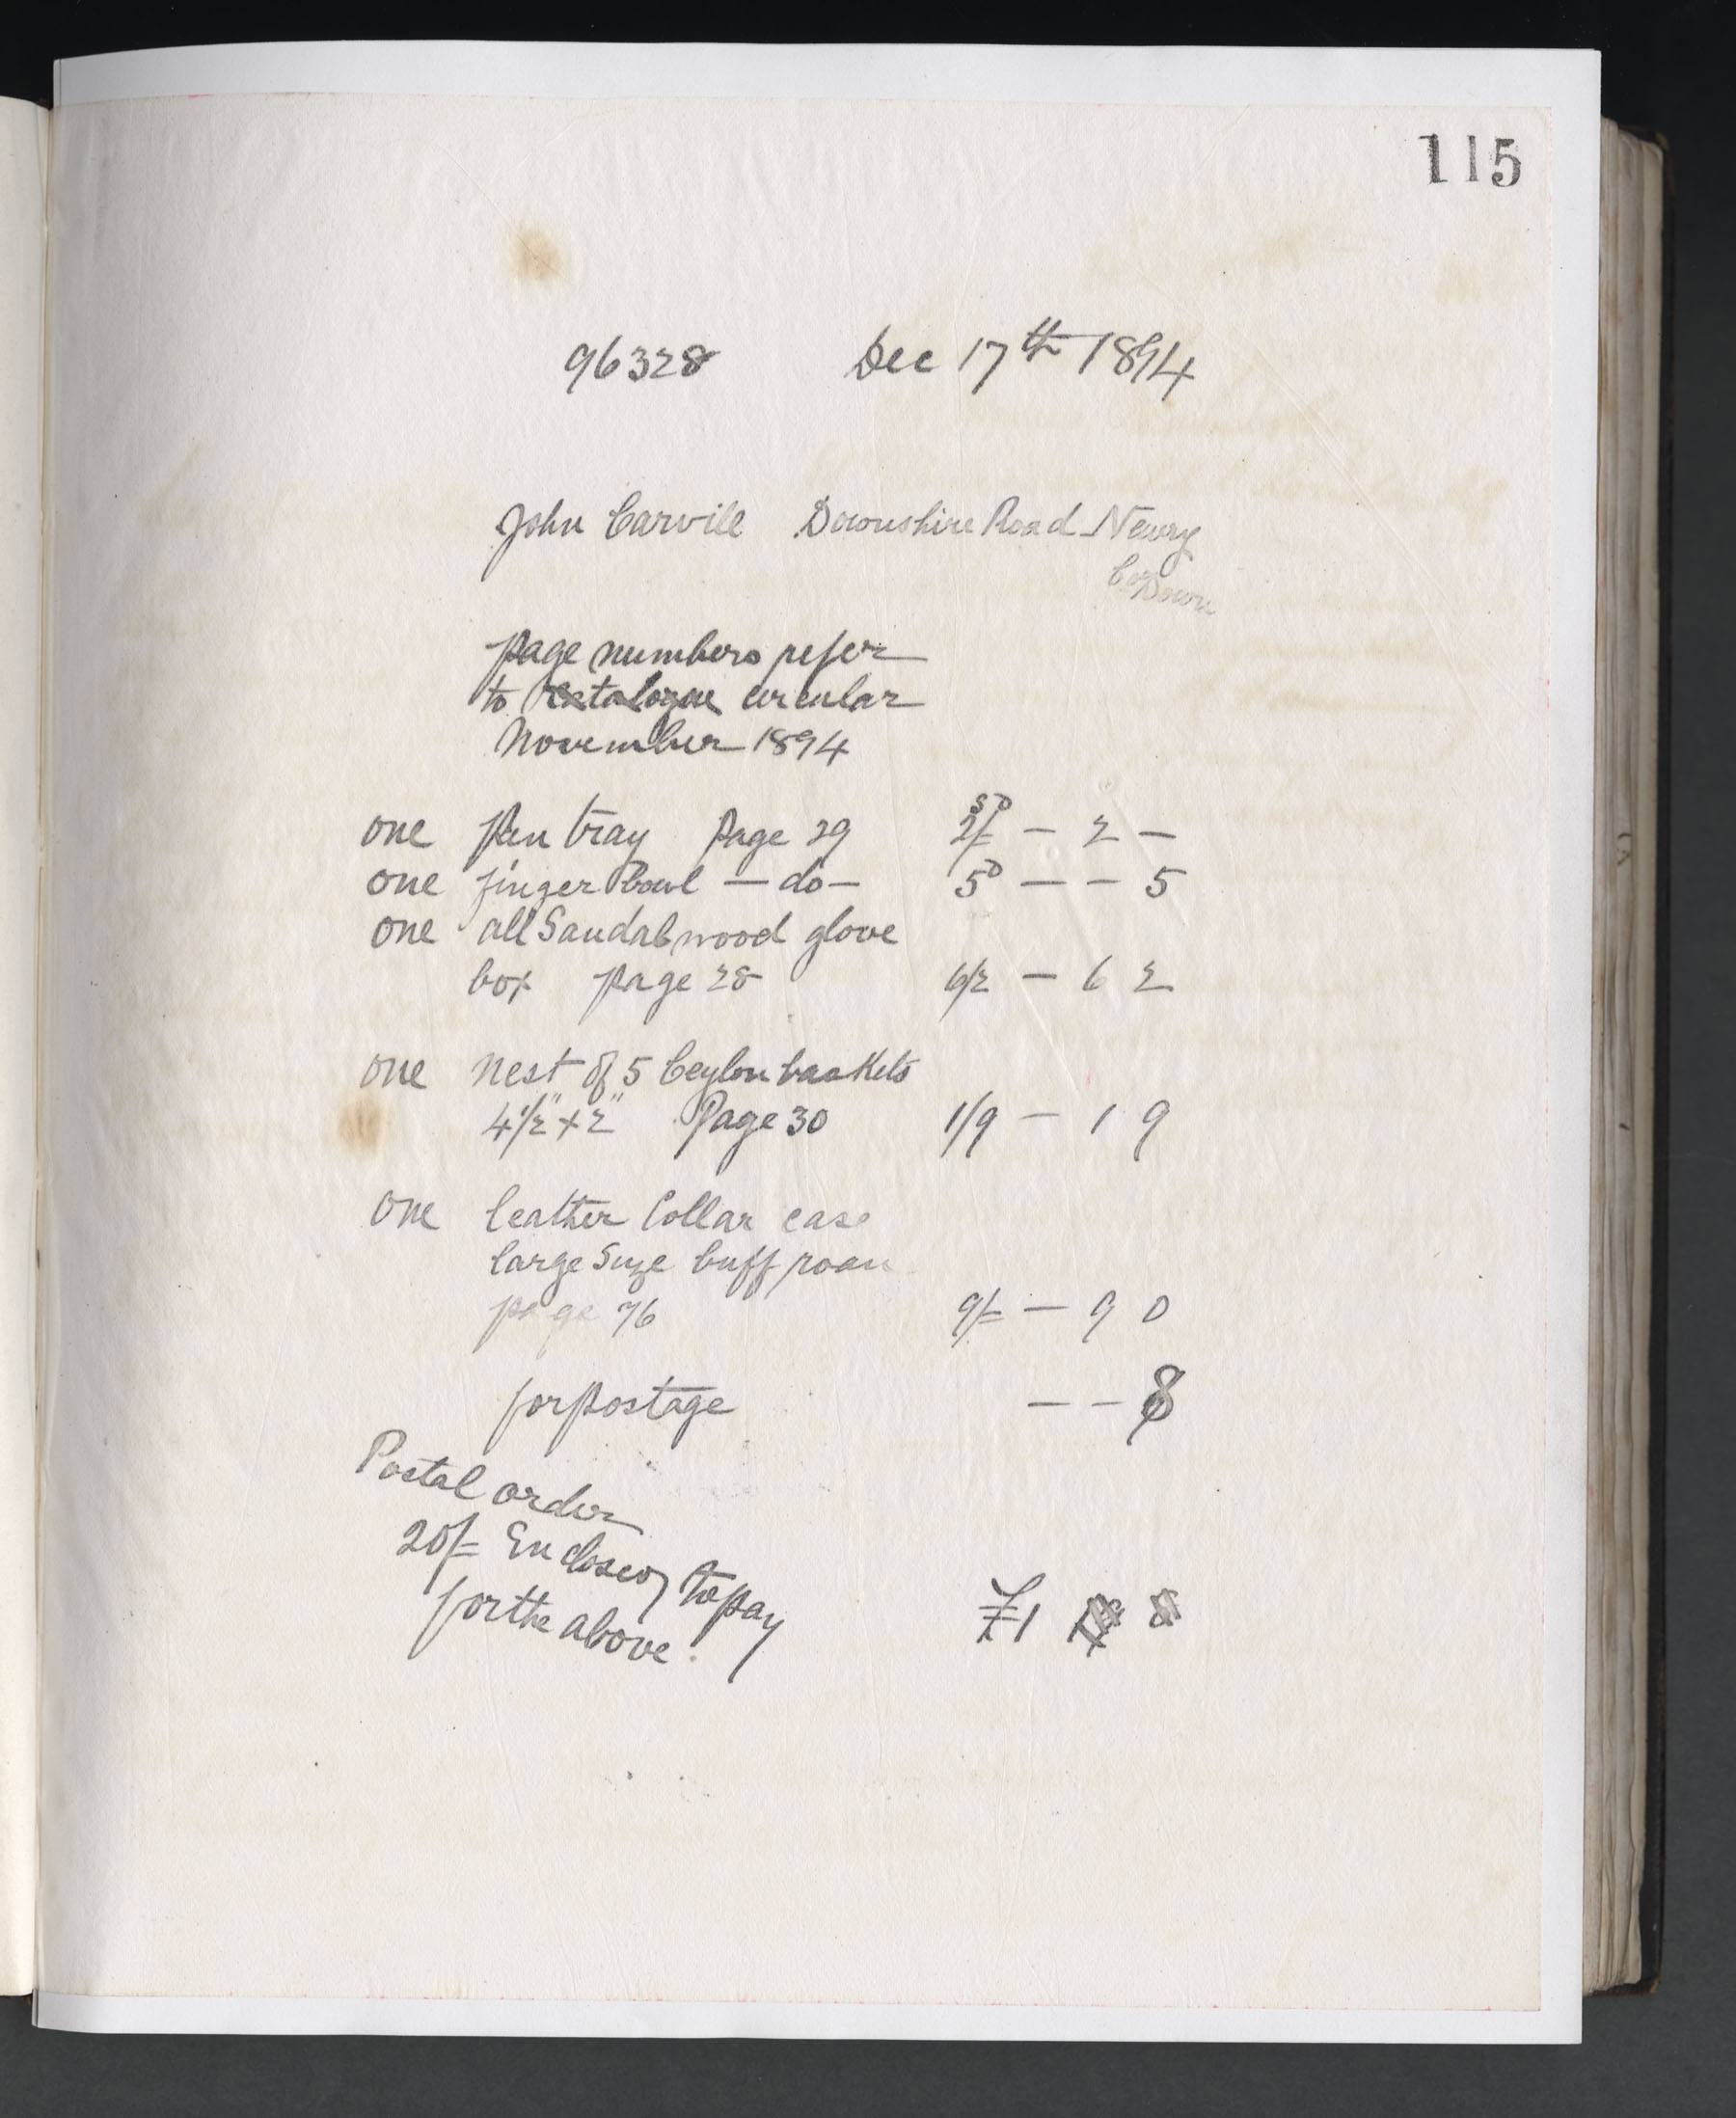 115
96328 Dec 17th 1894
John Carvill Downshire Road Newry
Co Down
Page numbers refer
to Catalogue circular
November 1894
one Pen tray Page 29 2/= — 2 —
one finger bowl — do — 5D — — 5
one all Sandalwood glove
box page 28 6/2 — 6 2
one nest of 5 Ceylon baskets
4 1/2" x 2" Page 30 1/9 — 1 9
one leather Collar case
large Size buff roan
page 76 9/= — 9 0
for postage — — 8
Postal order
20/= Enclosed to pay
for the above.
£1